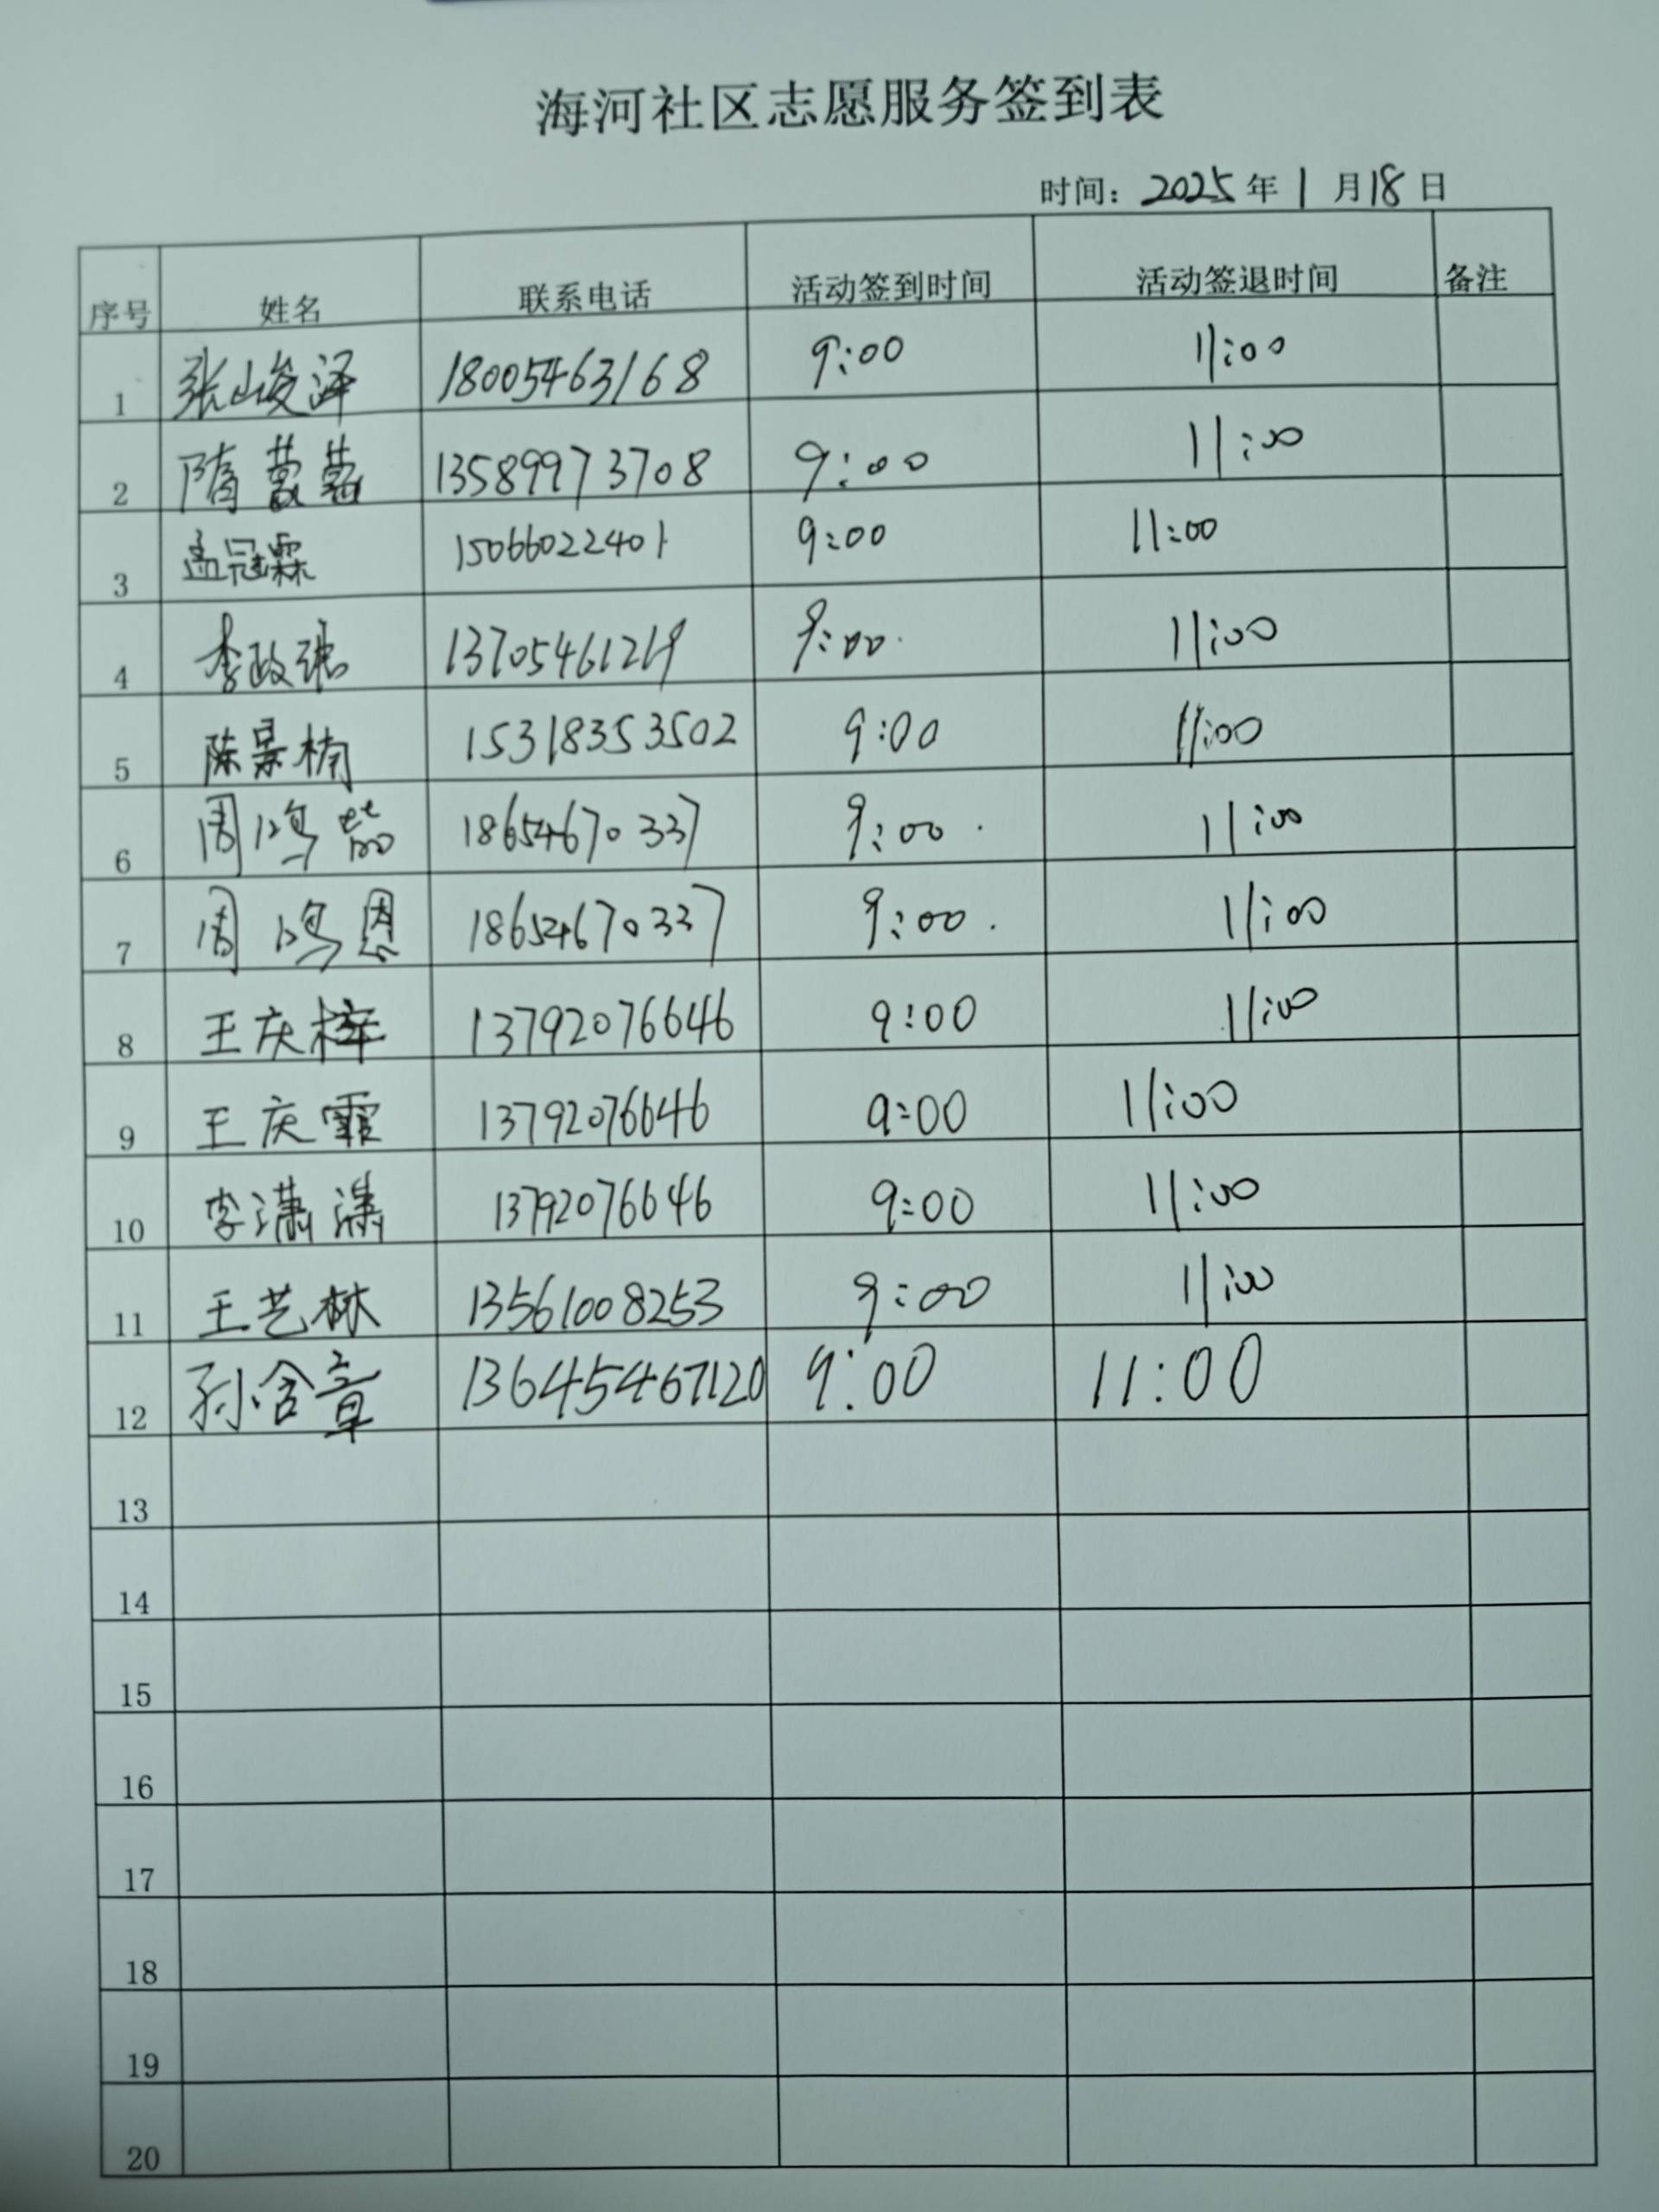 海河社区志愿服务签到表
时间：2025年1月18日
序号 姓名 联系电话 活动签到时间 活动签退时间 备注
1 张峻泽 18005463168 9:00 11:00
2 隋 13589973708 9:00 11:00
3 孟冠霖 15066022401 9:00 11:00
4 李政 13705461219 9:00 11:00
5 陈景楠 15318353502 9:00 11:00
6 周鸿喆 18654670337 9:00 11:00
7 周鸿恩 18654670337 9:00 11:00
8 王庆梓 13792076646 9:00 11:00
9 王庆霏 13792076646 9:00 11:00
10 李潇潇 13792076646 9:00 11:00
11 王艺林 13561008253 9:00 11:00
12 孙含章 13645467120 9:00 11:00
13
14
15
16
17
18
19
20